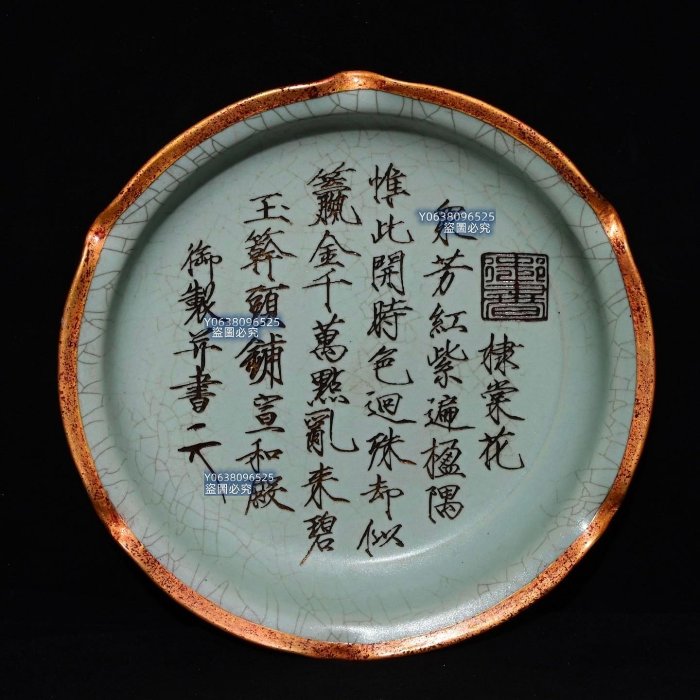 棣棠花
眾芳紅紫遍楹隅
惟此開時色迥殊却似
籯金千萬點亂來碧
玉簳頭鋪宣和殿
御製并書
御書
Y0638096525
盜圖必究
Y0638096525
盜圖必究
Y0638096525
盜圖必究